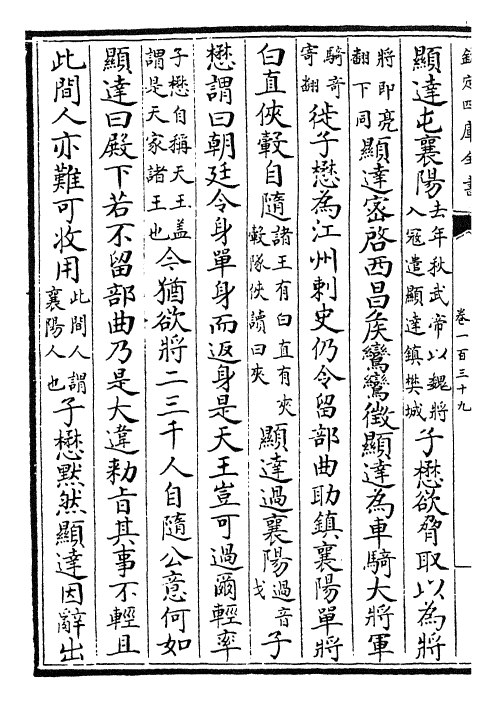 欽定四庫全書
卷一百三十九
顯達屯襄陽去年秋武帝以魏將入冦遣顯達鎮樊城子懋欲脅取以為將
將即亮翻下同顯達密啓西昌矦鸞鸞徴顯達為車騎大將軍
騎奇寄翻徙子懋為江州刺史仍令留部曲助鎮襄陽單將
白直俠轂自隨諸王有白直有夾轂隊俠讀曰夾顯達過襄陽過音戈子
懋謂曰朝廷令身單身而返身是天王豈可過爾輕率
子懋自稱天王盖謂是天家諸王也今猶欲將二三千人自隨公意何如
顯達曰殿下若不留部曲乃是大違勅旨其事不輕且
此間人亦難可收用此間人謂襄陽人也子懋黙然顯達因辭出